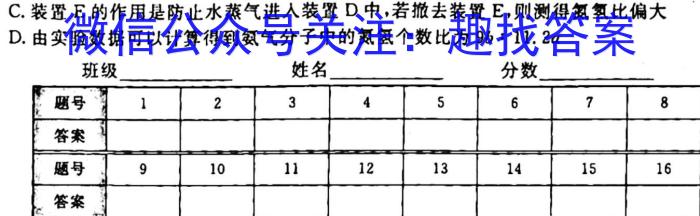 C.装置E的作用是防止水蒸气进入装置D中,若撤去装置E,则测得氮氢比偏大
D.由实验数据可以计算得到氨气分子中的氮氢个数比为
微信公众号关注:趣找答案
班级 姓名 分数
题号 1 2 3 4 5 6 7 8
答案
题号 9 10 11 12 13 14 15 16
答案